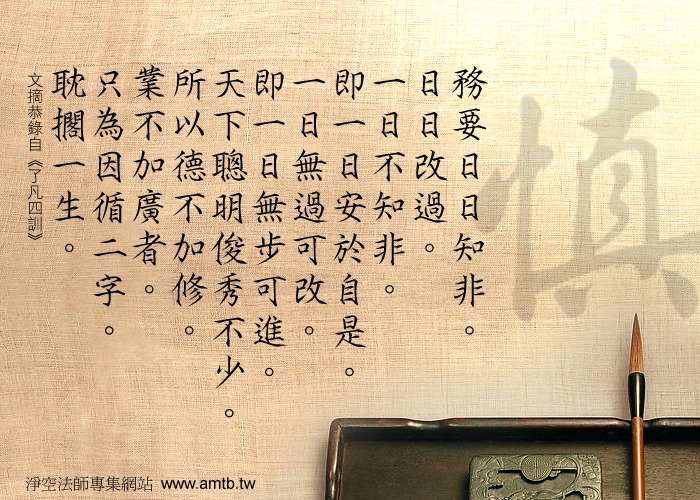 務要日日知非。
日日改過。
一日不知非。
即一日安於自是。
一日無過可改。
即一日無步可進。
天下聰明俊秀不少。
所以德不加修。
業不加廣者。
只為因循二字。
耽擱一生。
文摘恭錄自《了凡四訓》
慎
淨空法師專集網站 www.amtb.tw